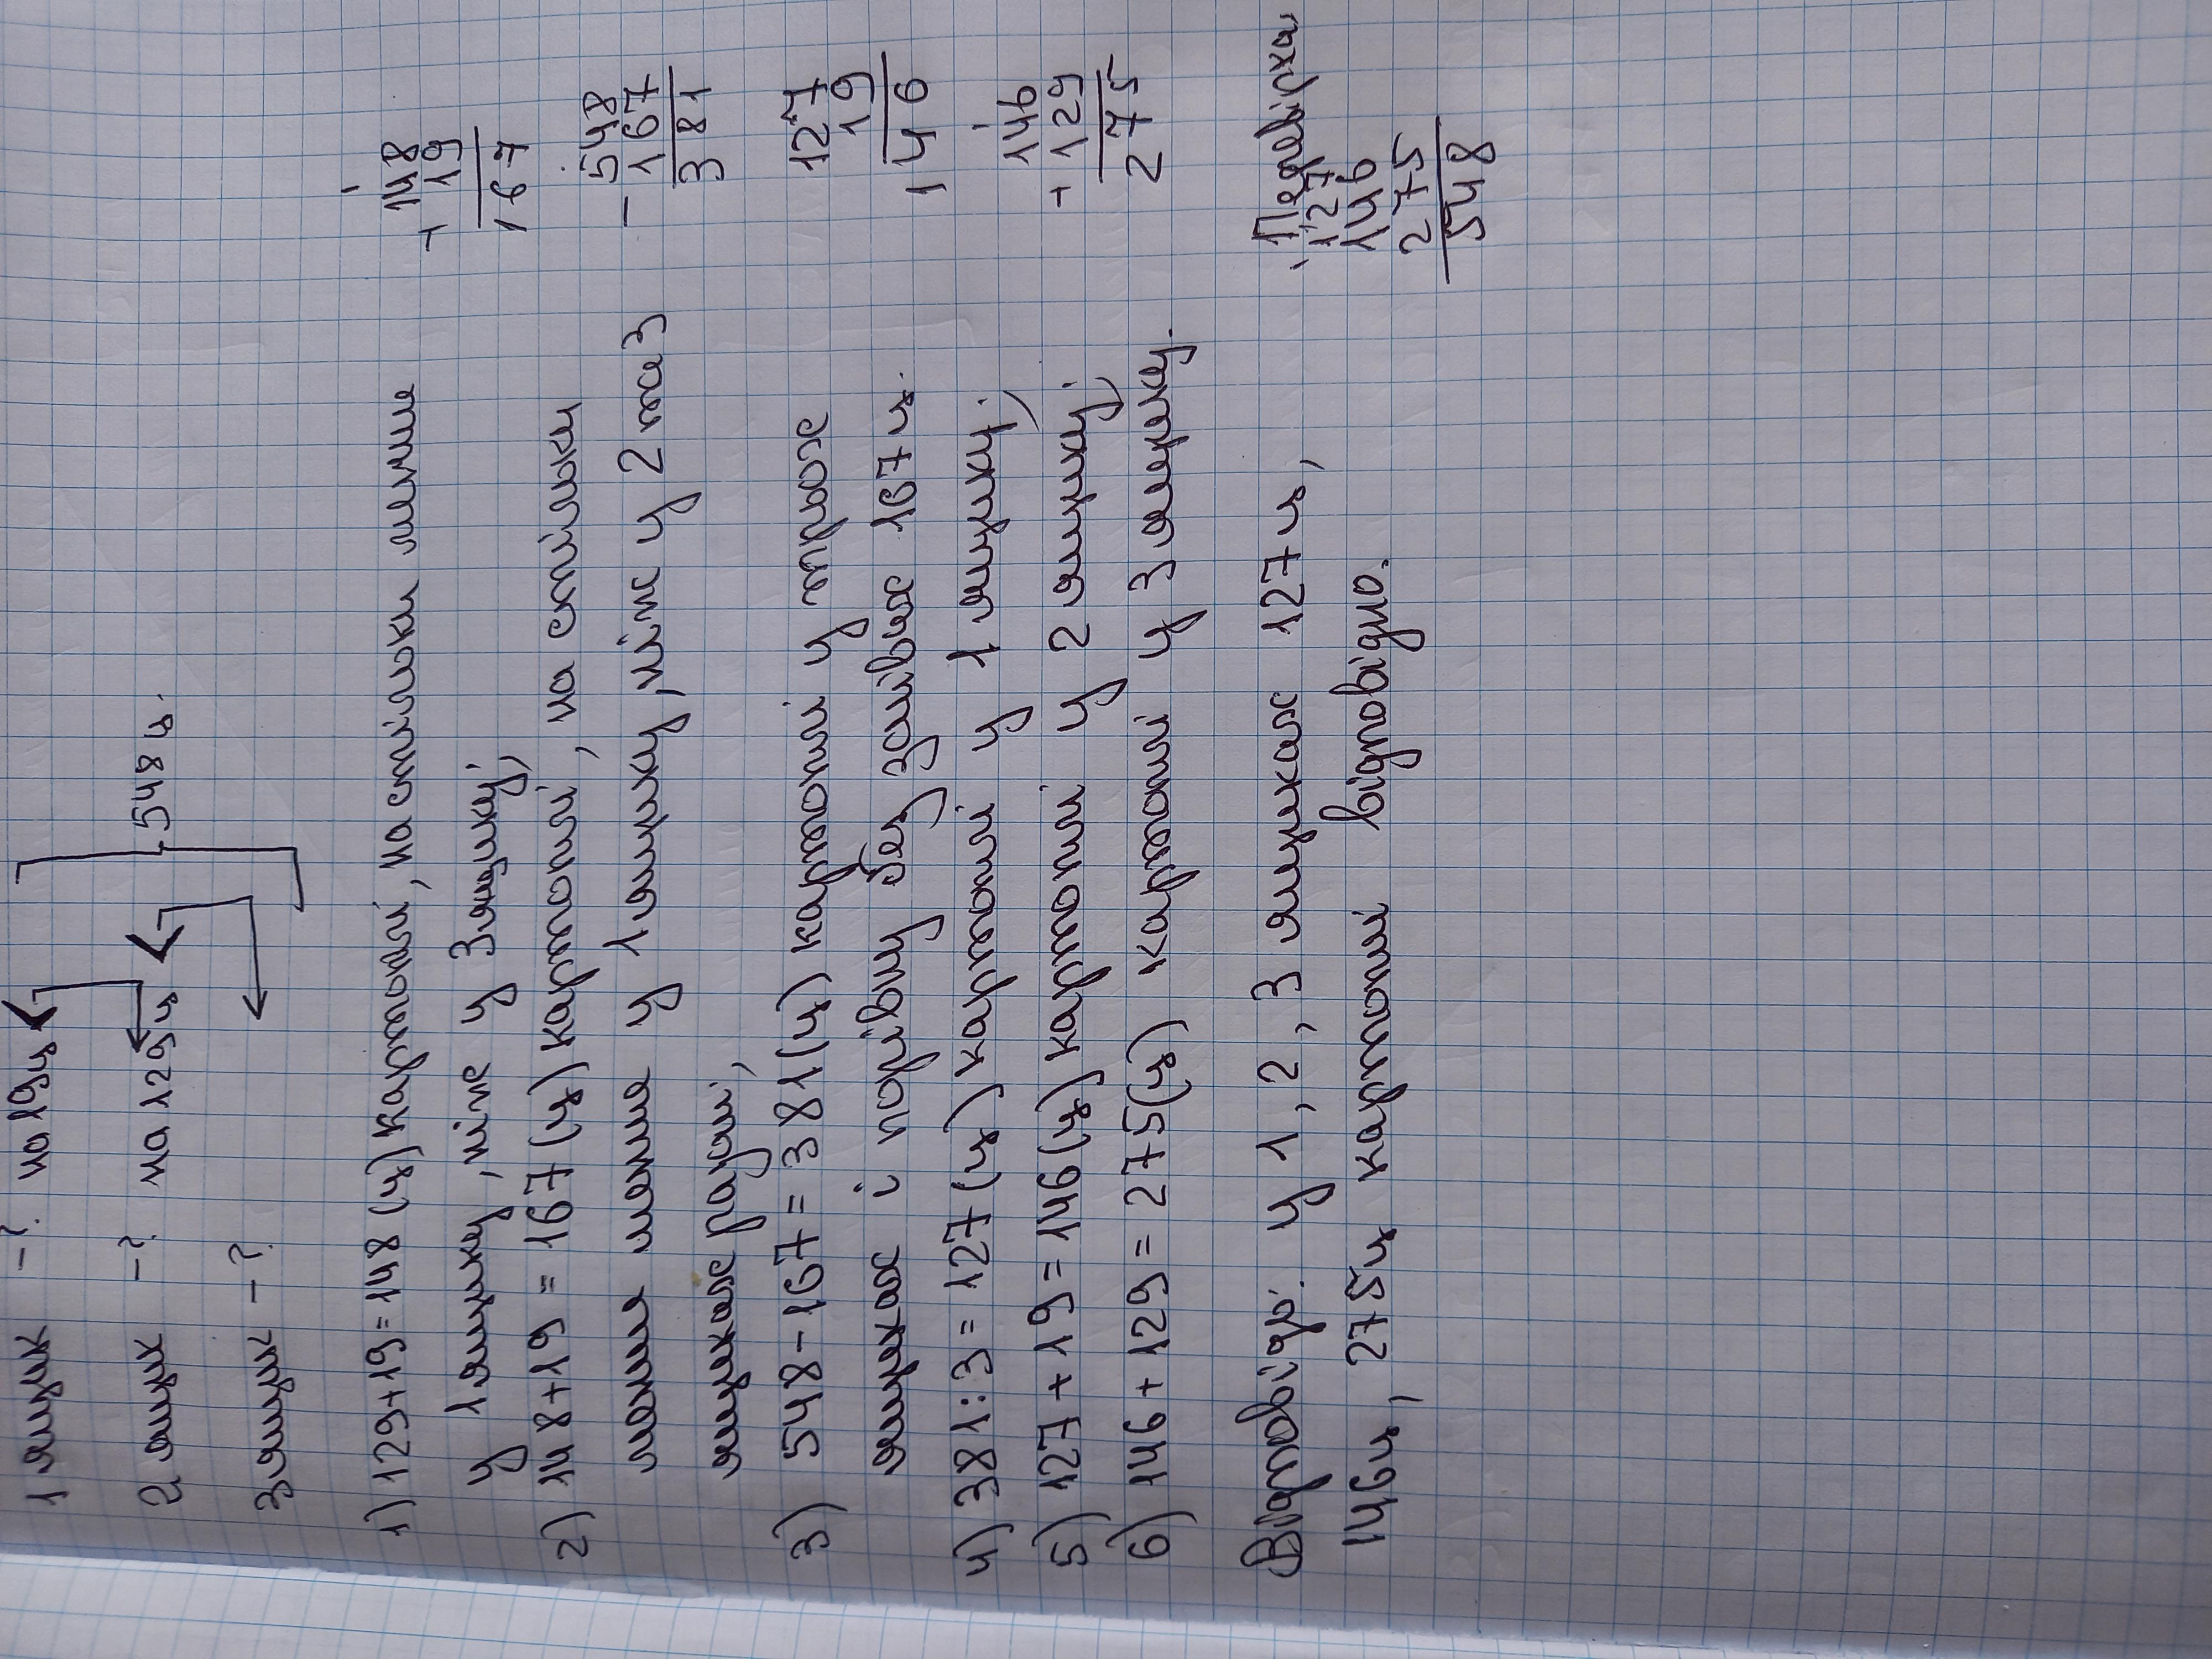 1 ящик -? на 19ц <
2 ящик -? на 129ц <
548 ц.
3 ящик -?
1) 129+19=148 (ц) картоплі, на стільки менше
у 1 ящику, ніж у 3 ящику;
2) 148+19 = 167 (ц) картоплі, на стільки
у 1 ящику, ніж у 2 та 3
ящиках разом;
3) 548-167=381(ц) картоплі у трьох
ящиках і порівну без зайвих 167ц.
4) 381:3=127(ц) картоплі у 1 ящику;
5) 127+19=146(ц) картоплі у 2 ящику;
6) 146+129=275(ц) картоплі у 3 ящику.
Відповідь: у 1, 2, 3 ящиках 127ц,
146ц, 275ц картоплі відповідно.
1
148
+ 19
167
548
- 167
381
127
19
146
1
146
+ 129
275
Перевірка
127
146
275
548